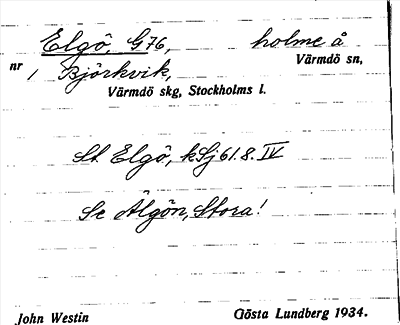 Elgö, G76, holme å
nr 1 Björkvik, Värmdö sn,
Värmdö skg, Stockholms l.
St Elgö, kSj 61.8. IV
Se Älgön, Stora!
John Westin Gösta Lundberg 1934.